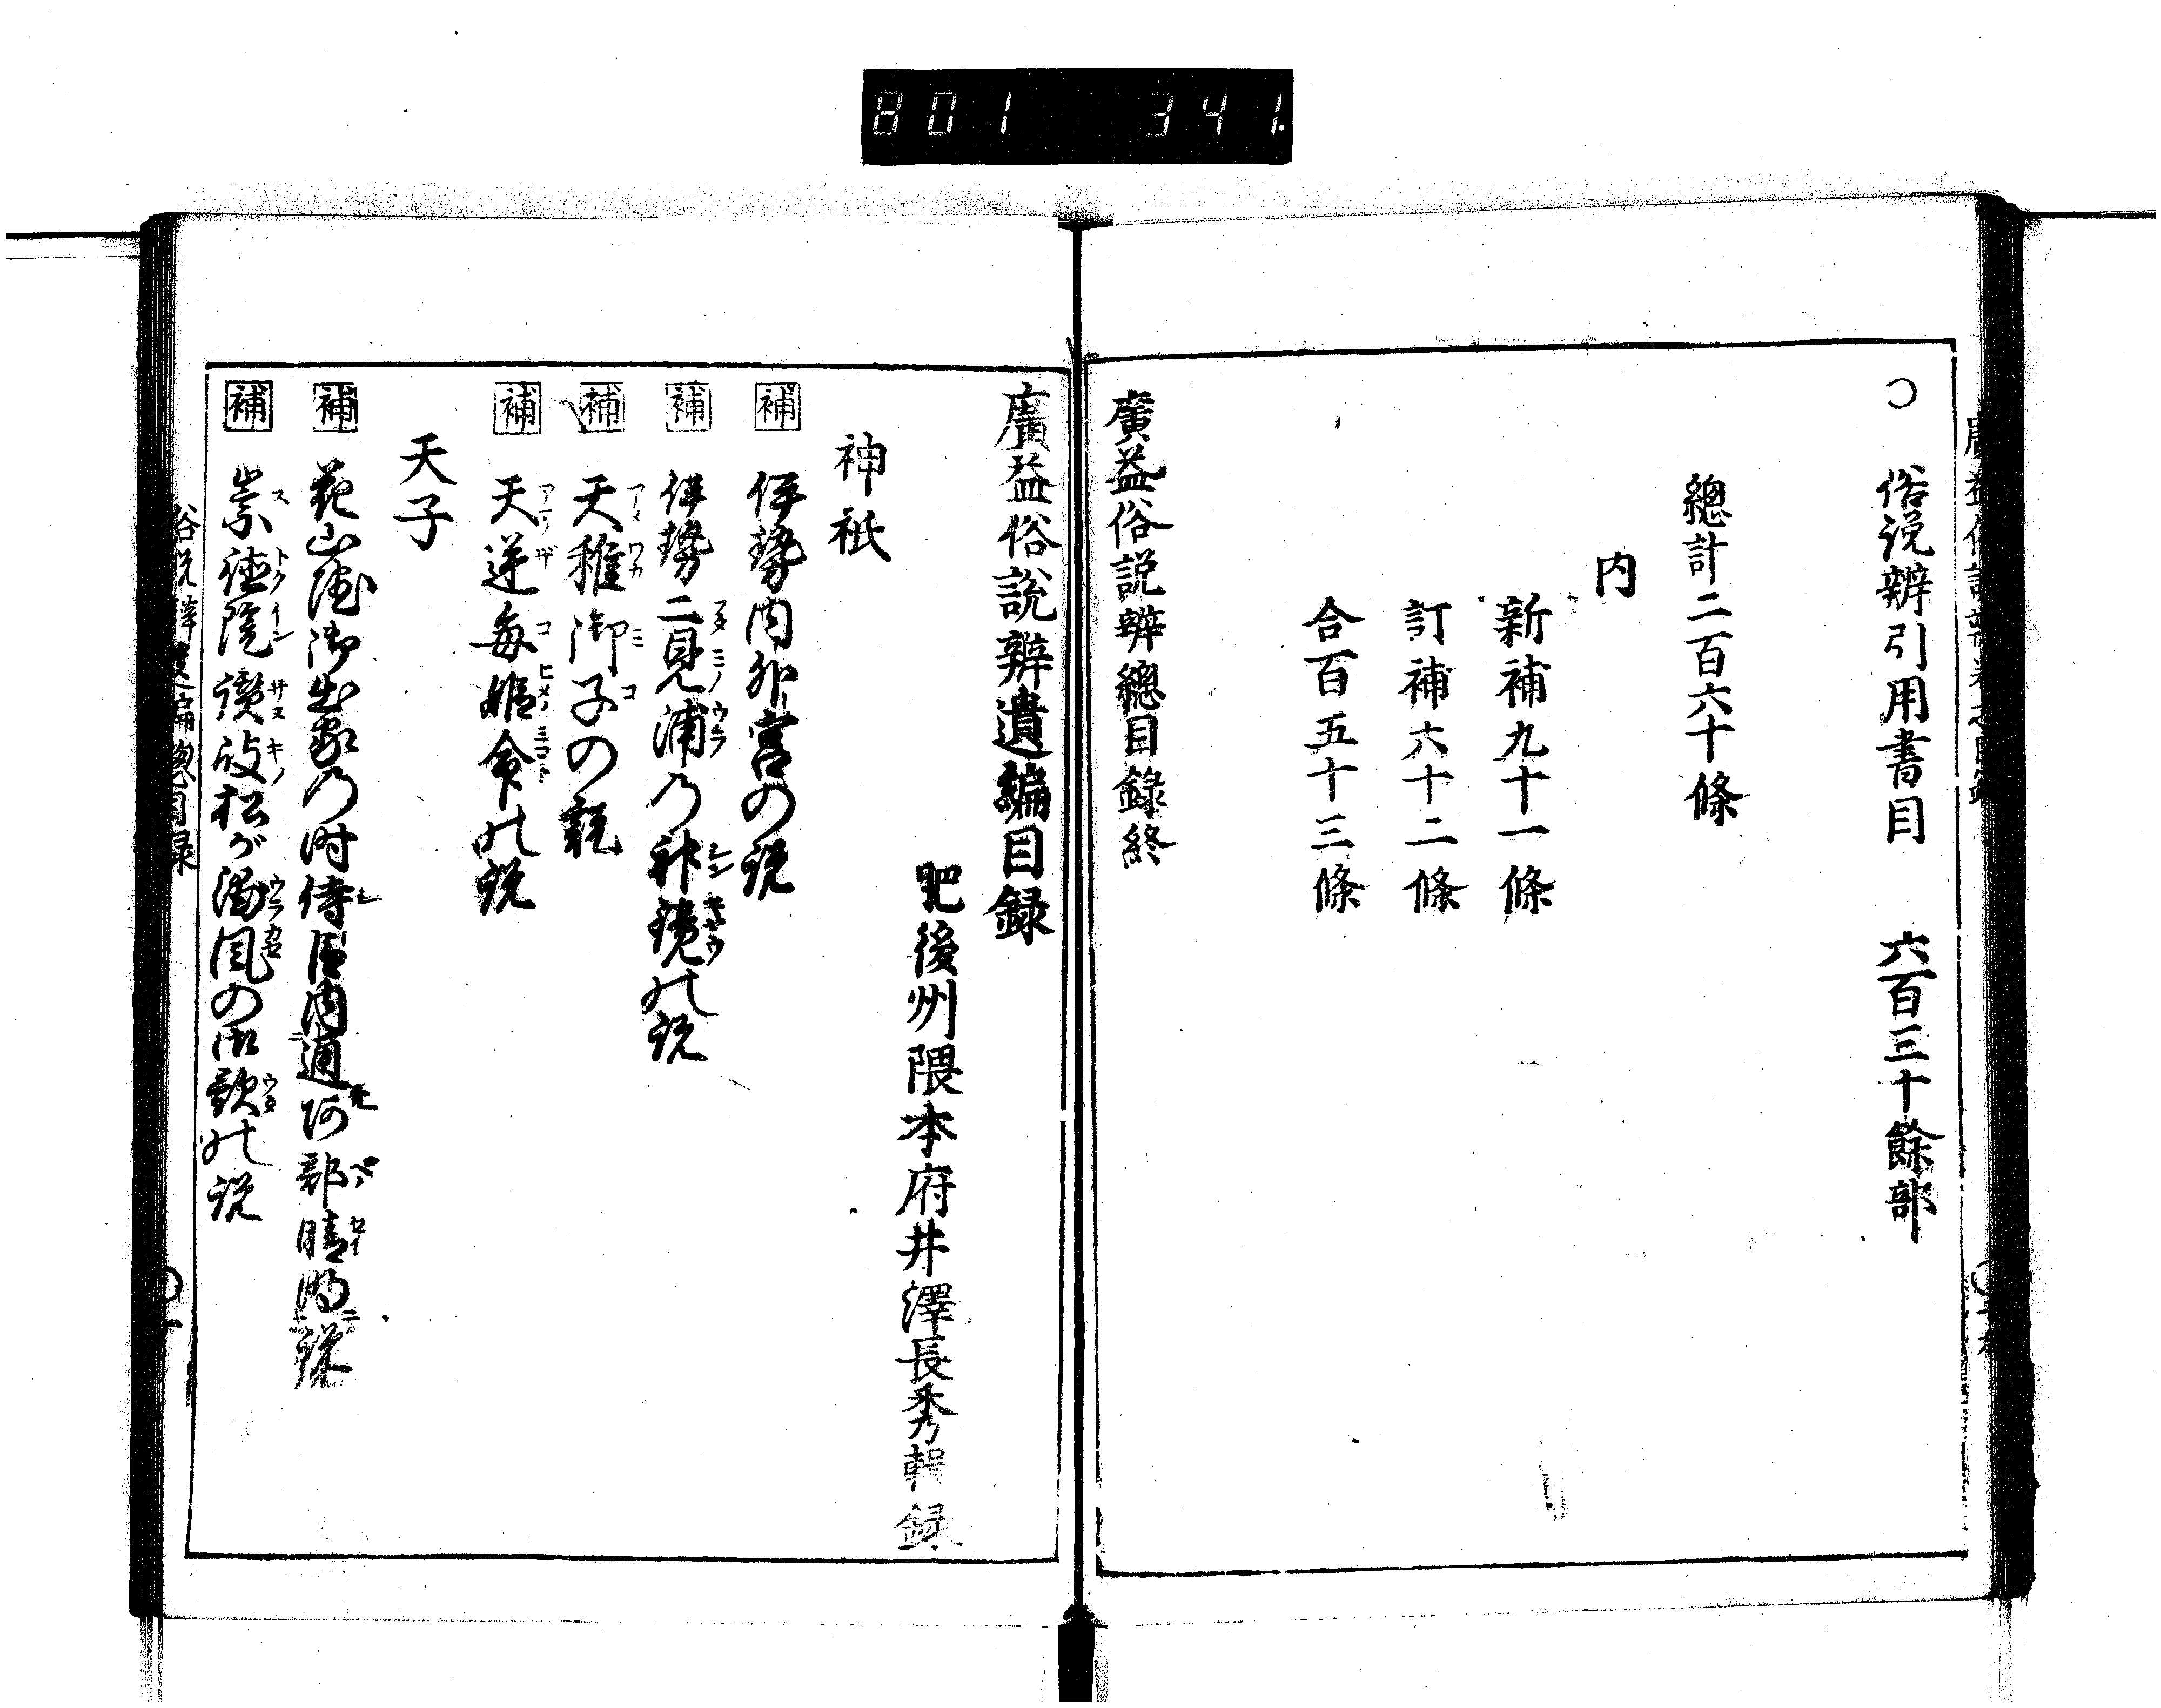 801 341.
○ 俗説辨引用書目 六百三十餘部
總計二百六十條
内
新補九十一條
訂補六十二條
合百五十三條
廣益俗說辨總目録終
廣益俗說辨遺編目録
肥後州隈本府井澤長秀輯録
神祇
補 伊勢内外宮の説
補 伊勢二見浦乃神鏡の説
補 天稚御子の説
補 天逆毎姫命の説
天子
補 花山院御出家乃時侍臣内通阿部晴明
補 崇徳院讃岐松が浦風の御歌の説
俗説辨遺編總目録